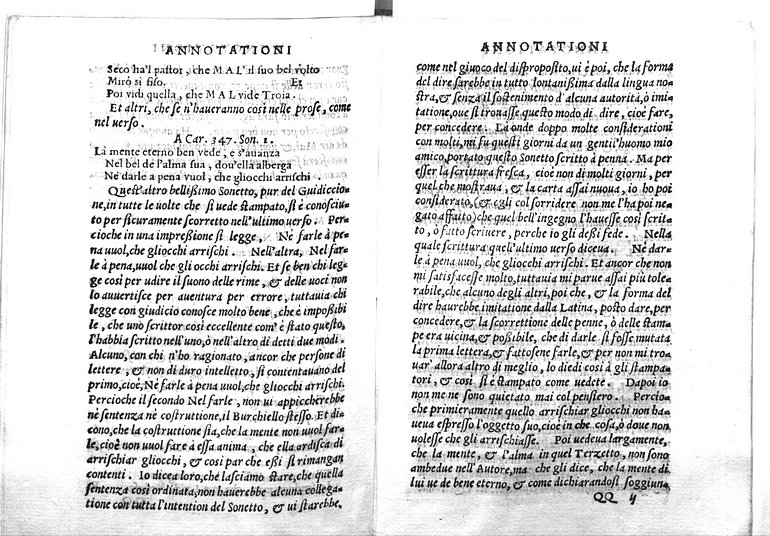 ANNOTATIONI
Seco ha'l pastor, che MAL' il suo bel volto
Mirò sì fiso. Et
Poi vidi quella, che MAL vide Troia.
Et altri, che se n'haueranno così nelle prose, come
nel verso.
A Car. 347. Son. 1.
La mente eterno ben vede, e s'auanza
Nel bel de l'alma sua, dou'ella alberga
Ne darle a pena vuol, che gliocchi arrischi.
Quest'altro bellißimo Sonetto, pur del Guidiccio-
ne, in tutte le uolte che si uede stampato, si è conosciu-
to per sicuramente scorretto nell'ultimo verso. Per-
cioche in una impreßione si legge, Nè farle à pe-
na uuol, che gliocchi arrischi. Nell'altra, Nel far-
le à pena, uuol che gli occhi arrischi. Et se ben chi leg-
ge così per udire il suono delle rime, & delle uoci non
lo auuertisce per auentura per errore, tuttauia chi
legge con giudicio conosce molto bene, che è impoßibi-
le, che uno scrittor così eccellente com' è stato questo,
l'habbia scritto nell'uno, ò nell'altro di detti due modi.
Alcuno, con chi n'ho ragionato, ancor che persone di
lettere, & non di duro intelletto, si contentauano del
primo, cioè, Nè farle à pena uuol, che gliocchi arrischi.
Percioche il secondo Nel farle, non ui appiccherebbe
nè sentenza nè costruttione, il Burchiello stesso. Et di-
cono, che la costruttione sia, che la mente non uuol far-
le, cioè non vuol fare à essa anima, che ella ardisca di
arrischiar gliocchi, & così par che eßi si rimangan
contenti. Io dicea loro, che lasciamo stare, che quella
sentenza così ordinata, non hauerebbe alcuna collega-
tione con tutta l'intention del Sonetto, & ui starebbe,
ANNOTATIONI
come nel giuoco del disproposito, ui è poi, che la forma
del dire sarebbe in tutto lontanißima dalla lingua no-
stra, & senza il sostenimento d'alcuna autorità, ò imi-
tatione, oue si trouasse questo modo di dire, cioè fare,
per concedere. La onde doppo molte considerationi
con molti, mi fu questi giorni da un gentil'huomo mio
amico, portato questo Sonetto scritto à penna. Ma per
esser la scrittura fresca, cioè non di molti giorni, per
quel che mostraua, & la carta assai nuoua, io ho poi
considerato, (& egli col sorridere non me l'ha poi ne-
gato affatto) che quel bell'ingegno l'hauesse così scrit-
to, ò fatto scriuere, perche io gli deßi fede. Nella
quale scrittura quell'ultimo verso diceua. Nè dar-
le à pena uuol, che gliocchi arrischi. Et ancor che non
mi satisfacesse molto, tuttauia mi parue assai più tole-
rabile, che alcuno degli altri, poi che, & la forma del
dire haurebbe imitatione dalla Latina, posto dare, per
concedere, & la scorrettione delle penne, ò delle stam-
pe era uicina, & poßibile, che di darle si fosse mutata
la prima lettera, & fattosene farle, & per non mi tro-
uar' allora altro di meglio, lo diedi così à gli stampa-
tori, & così si è stampato come uedete. Dapoi io
non me ne sono quietato mai col pensiero. Percio-
che primieramente quello arrischiar gliocchi non ha-
ueua espresso l'oggetto suo, cioè in che cosa, ò doue non
uolesse che gli arrischiasse. Poi uedeua largamente,
che la mente, & l'alma in quel Terzetto, non sono
ambedue nell'Autore, ma che gli dice, che la mente di
lui ue de bene eterno, & come dichiarandosi soggiun-
QQ ij